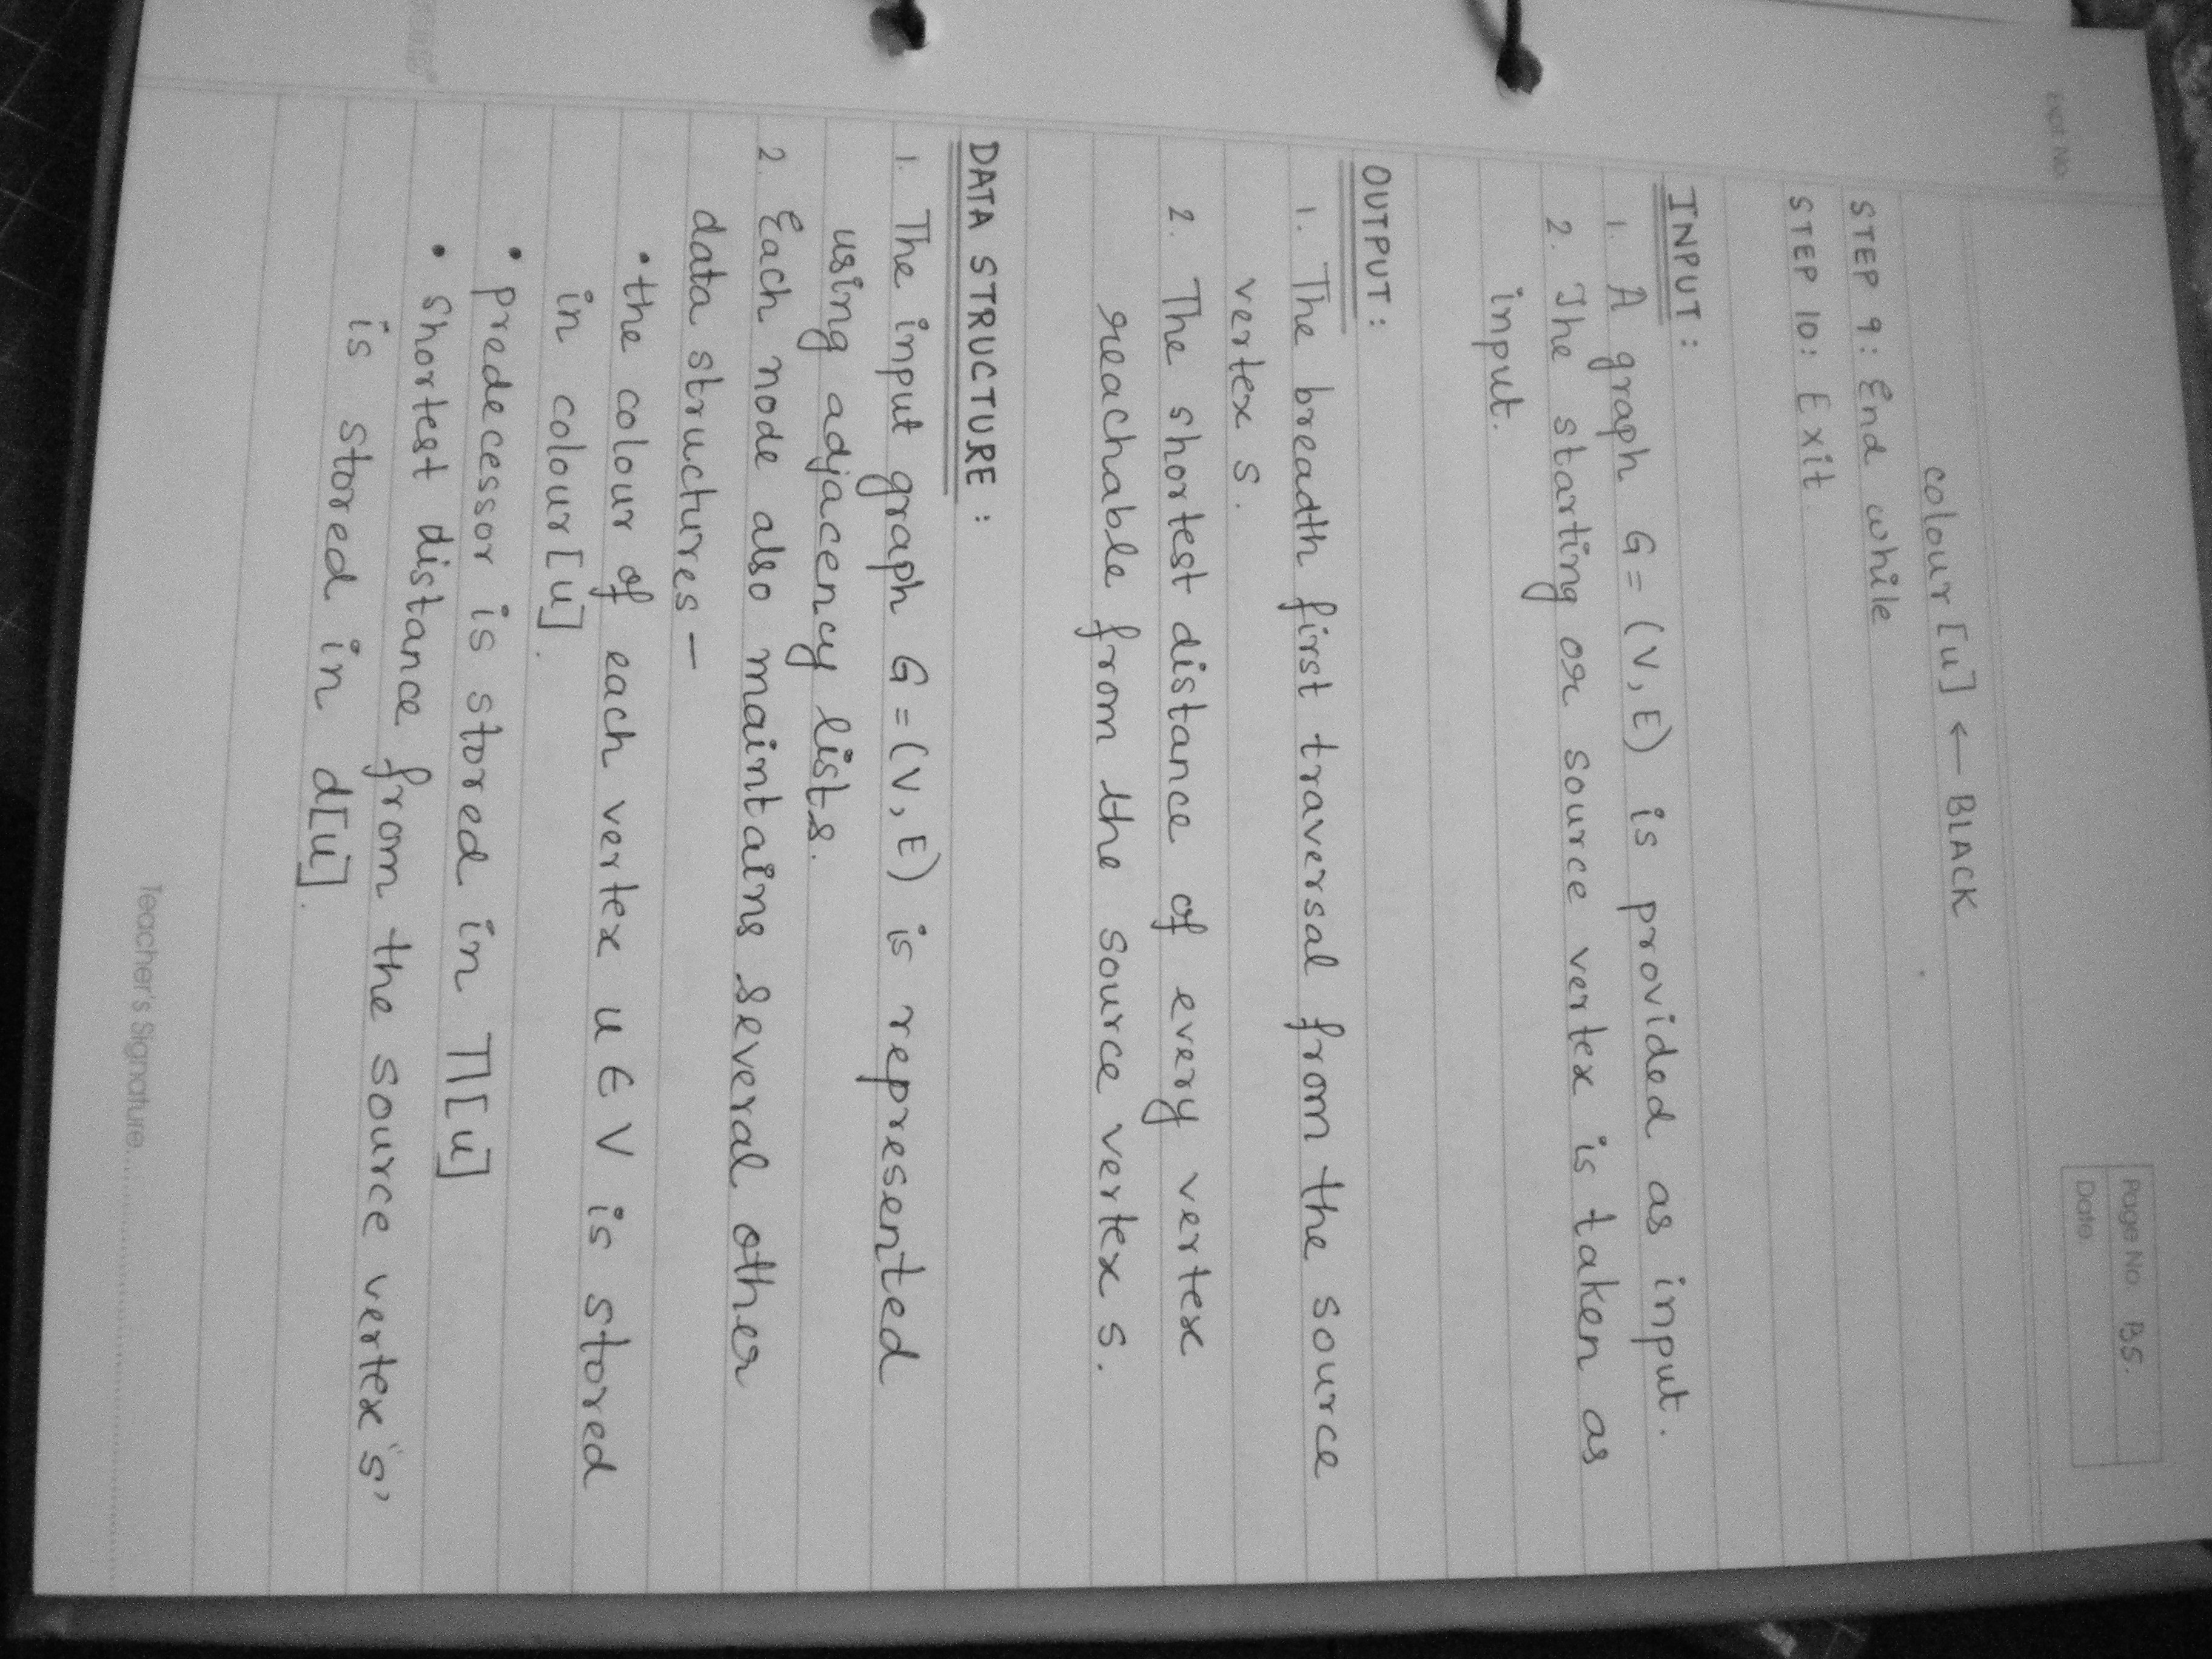 Expt. No.
Page No. B5.
Date
colour [u] ← BLACK
STEP 9: End while
STEP 10: Exit
INPUT:
1. A graph G = (V, E) is provided as input.
2. The starting or source vertex is taken as
input.
OUTPUT:
1. The breadth first traversal from the source
vertex s.
2. The shortest distance of every vertex
reachable from the source vertex s.
DATA STRUCTURE:
1. The input graph G = (V, E) is represented
using adjacency lists.
2. Each node also maintains several other
data structures —
• the colour of each vertex u ∈ V is stored
in colour[u].
• predecessor is stored in π[u]
• shortest distance from the source vertex 's'
is stored in d[u].
Teacher's Signature